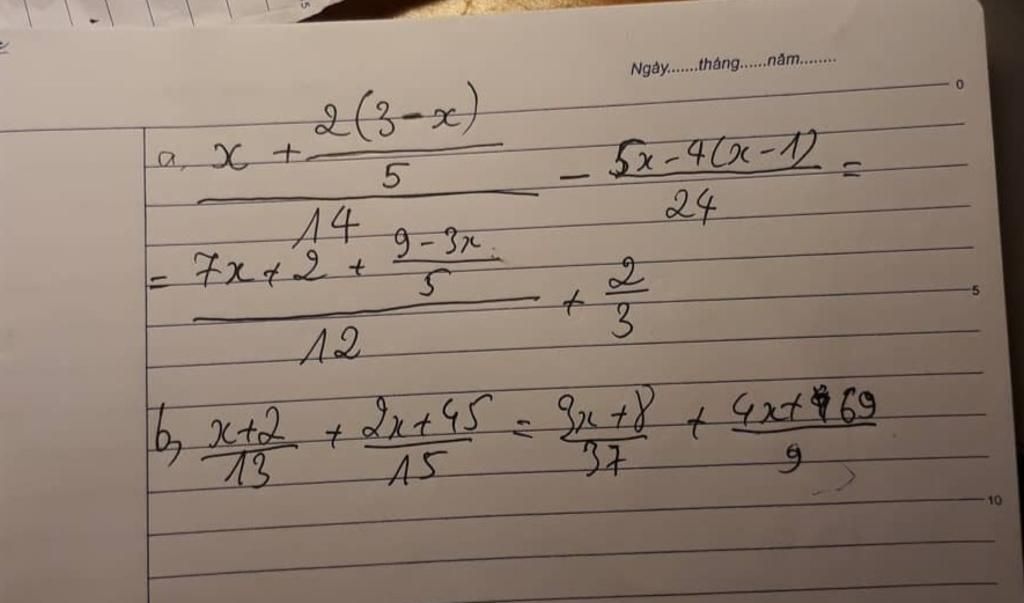 Ngày.......tháng......năm........
0
a, (x + (2(3-x))/5)/14 - (5x-4(x-1))/24 =
= (7x+2 + (9-3x)/5)/12 + 2/3
5
b, (x+2)/13 + (2x+45)/15 = (3x+8)/37 + (4x+69)/9
10